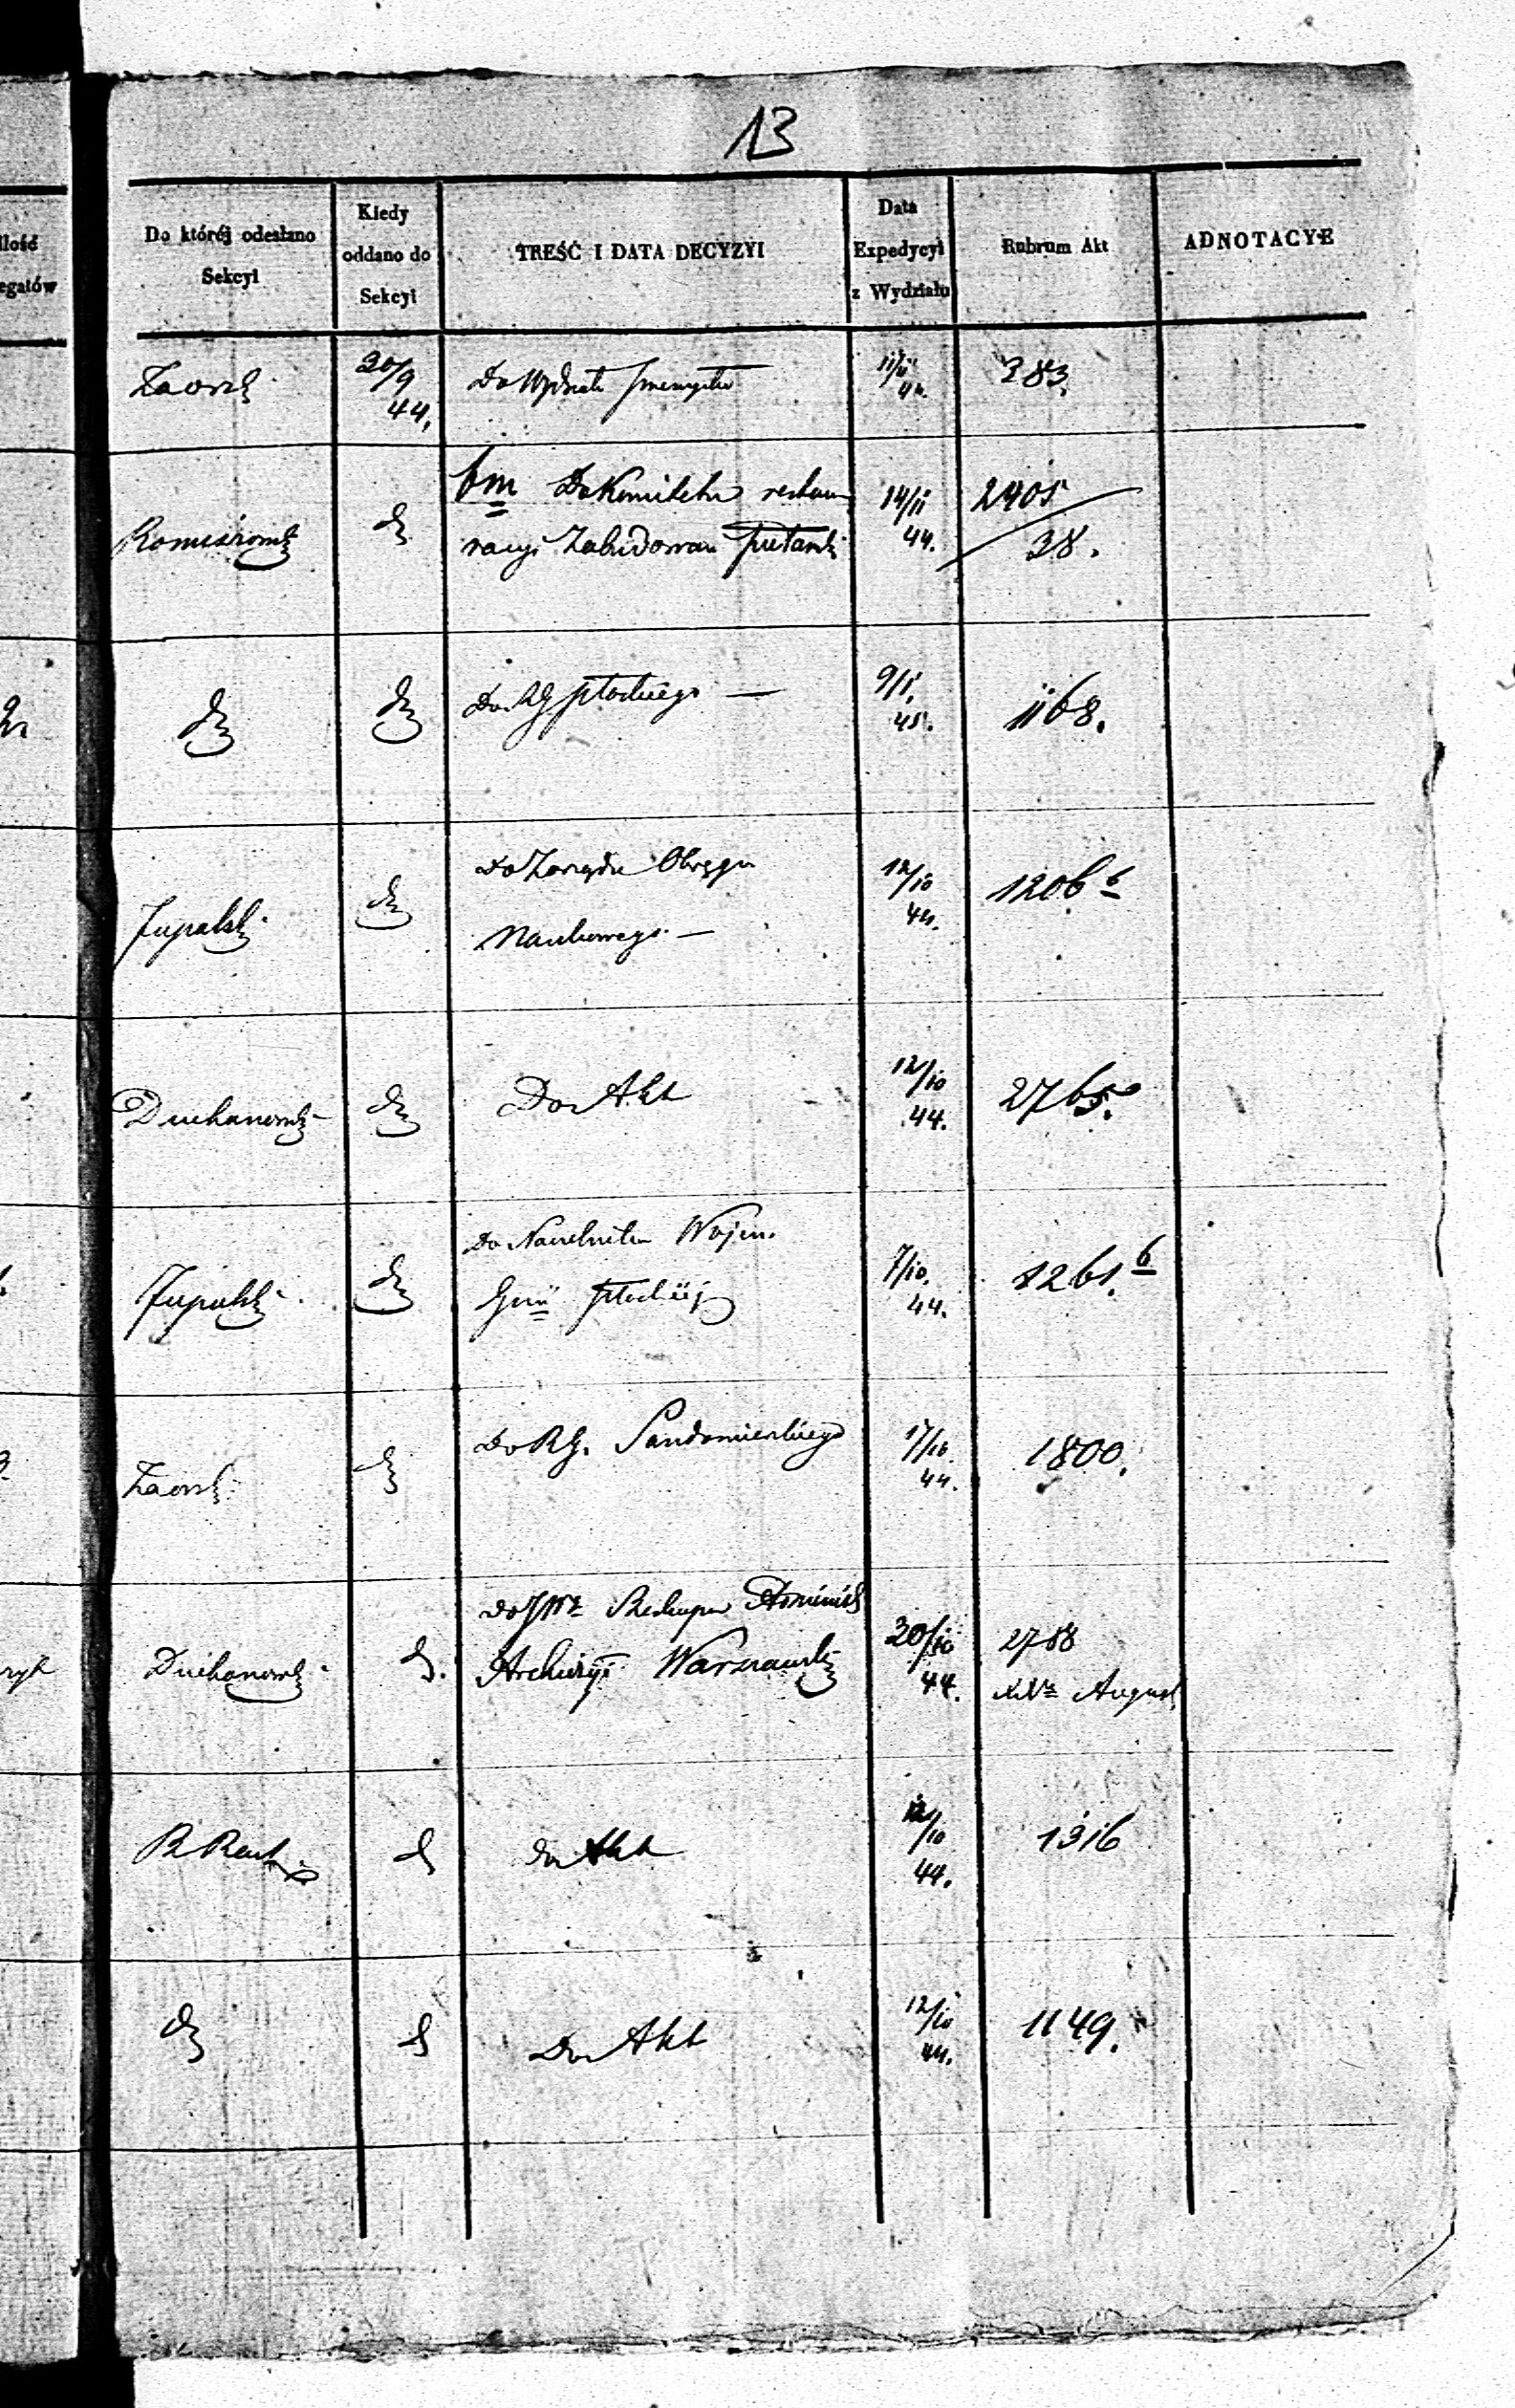 13
Ilość
egatów
Do któréj odesłano
Sekcyi
Kiedy
oddano do
Sekcyi
TREŚĆ I DATA DECYZYI
Data
Expedycyi
z Wydziału
Rubrum Akt
ADNOTACYE
Zaorsk
20/9
44.
Do Wydziału przemysłu
11/11
44.
383
do
bm Do Komitetu restau
racyi Zabudowań
14/11
44.
2405
38.
do
do
Do RG płockiego —
9/1.
45.
1168.
Jupalski
do
Do Zarządu Okręgu
Naukowego. —
12/10
44.
1206 b
Duchanowski
do
Do Akt
12/10
44.
2765.
Jupalski
do
Do Naczelnika Wojen.
Gnii płockiéj
7/10.
44.
1261. b
Zaorsk
do
Do RG. Sandomierskiego
17/10
44.
1800.
Duchanowski
do.
Do JW Biskupa
Archidyi Warszawski
20/10
44.
2758
August
do
do Akt
12/10
44.
1316
do
do
Do Akt
12/10
44.
1149.